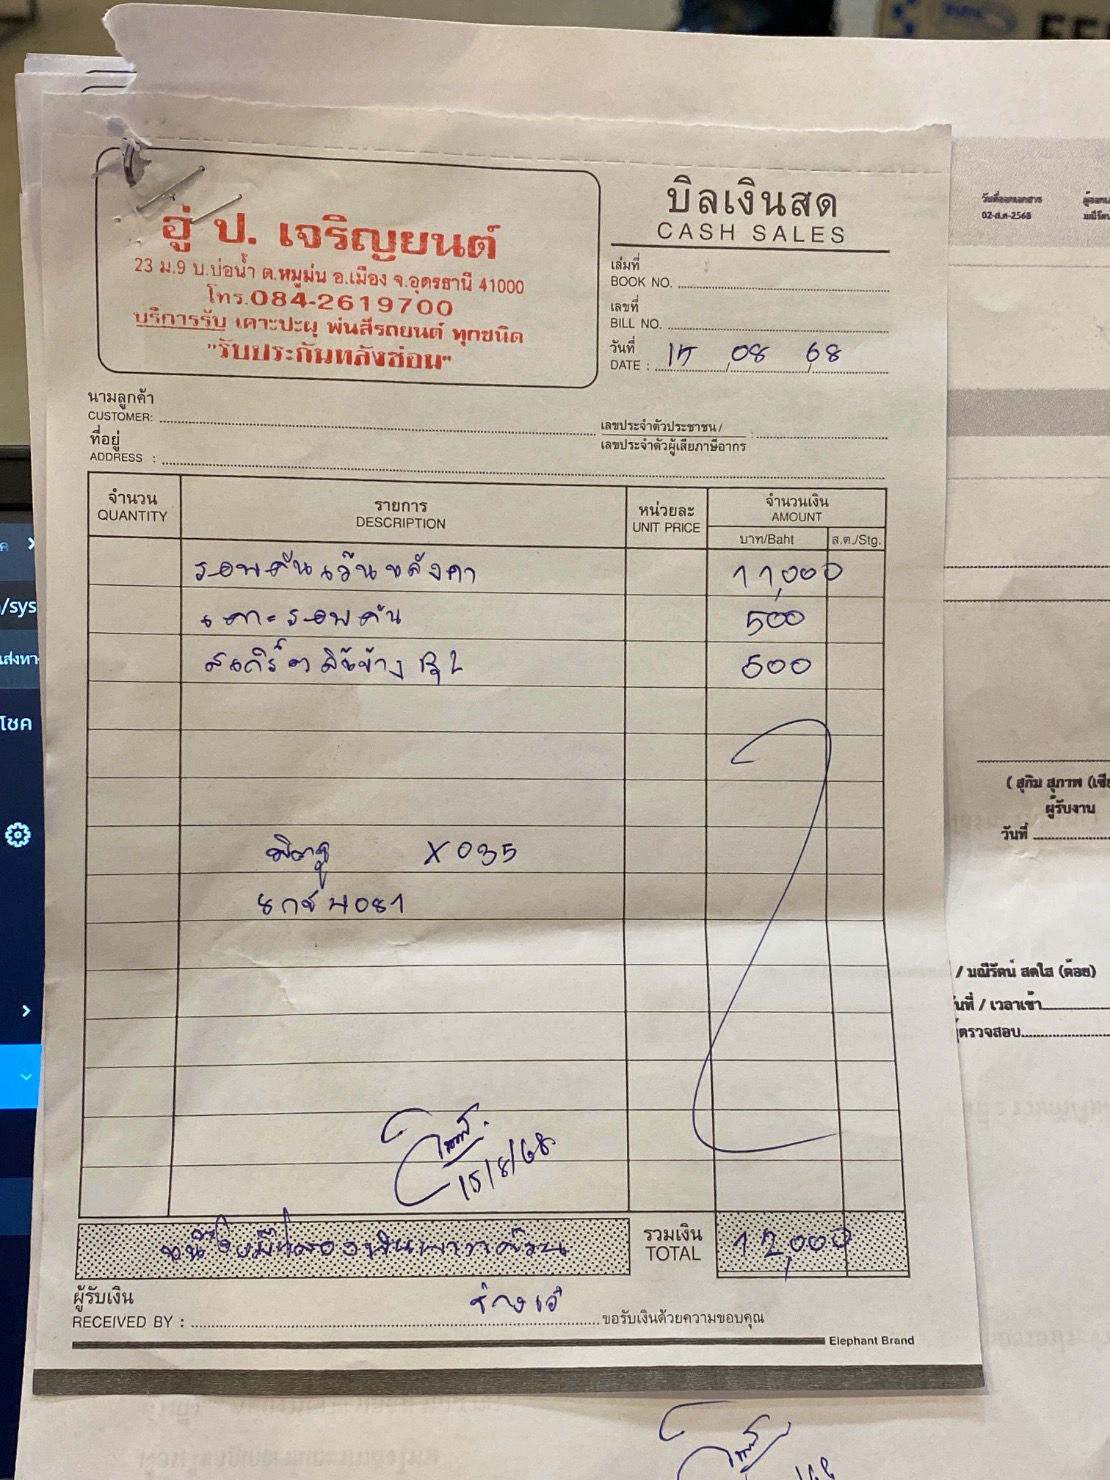 อู่ ป. เจริญยนต์
23 ม.9 บ.บ่อน้ำ ต.หมูม่น อ.เมือง จ.อุดรธานี 41000
โทร.084-2619700
บริการรับ เคาะปะผุ พ่นสีรถยนต์ ทุกชนิด
"รับประกันหลังซ่อม"
บิลเงินสด
CASH SALES
เล่มที่
BOOK NO.
เลขที่
BILL NO.
วันที่
DATE : 15 08 68
นามลูกค้า
CUSTOMER:
เลขประจำตัวประชาชน /
เลขประจำตัวผู้เสียภาษีอากร
ที่อยู่
ADDRESS :
จำนวน
QUANTITY
รายการ
DESCRIPTION
หน่วยละ
UNIT PRICE
จำนวนเงิน
AMOUNT
บาท/Baht
ส.ต./Stg.
รอบคันเว้นหลังคา 11,000
เคาะรอบคัน 500
สเกิร์ตลิ้นข้าง 500
X 035
ยกช 4081
15/8/68
รวมเงิน
TOTAL
12,000
ผู้รับเงิน
RECEIVED BY :
ช่างเอ๋
ขอรับเงินด้วยความขอบคุณ
Elephant Brand
วันที่ออกเอกสาร
02-ส.ค-2568
/sys
โชค
( สุกิม สุภาพ
ผู้รับงาน
วันที่
/ มณีรัตน์ สดใส (ต้อย)
วันที่ / เวลาเข้า
ผู้ตรวจสอบ